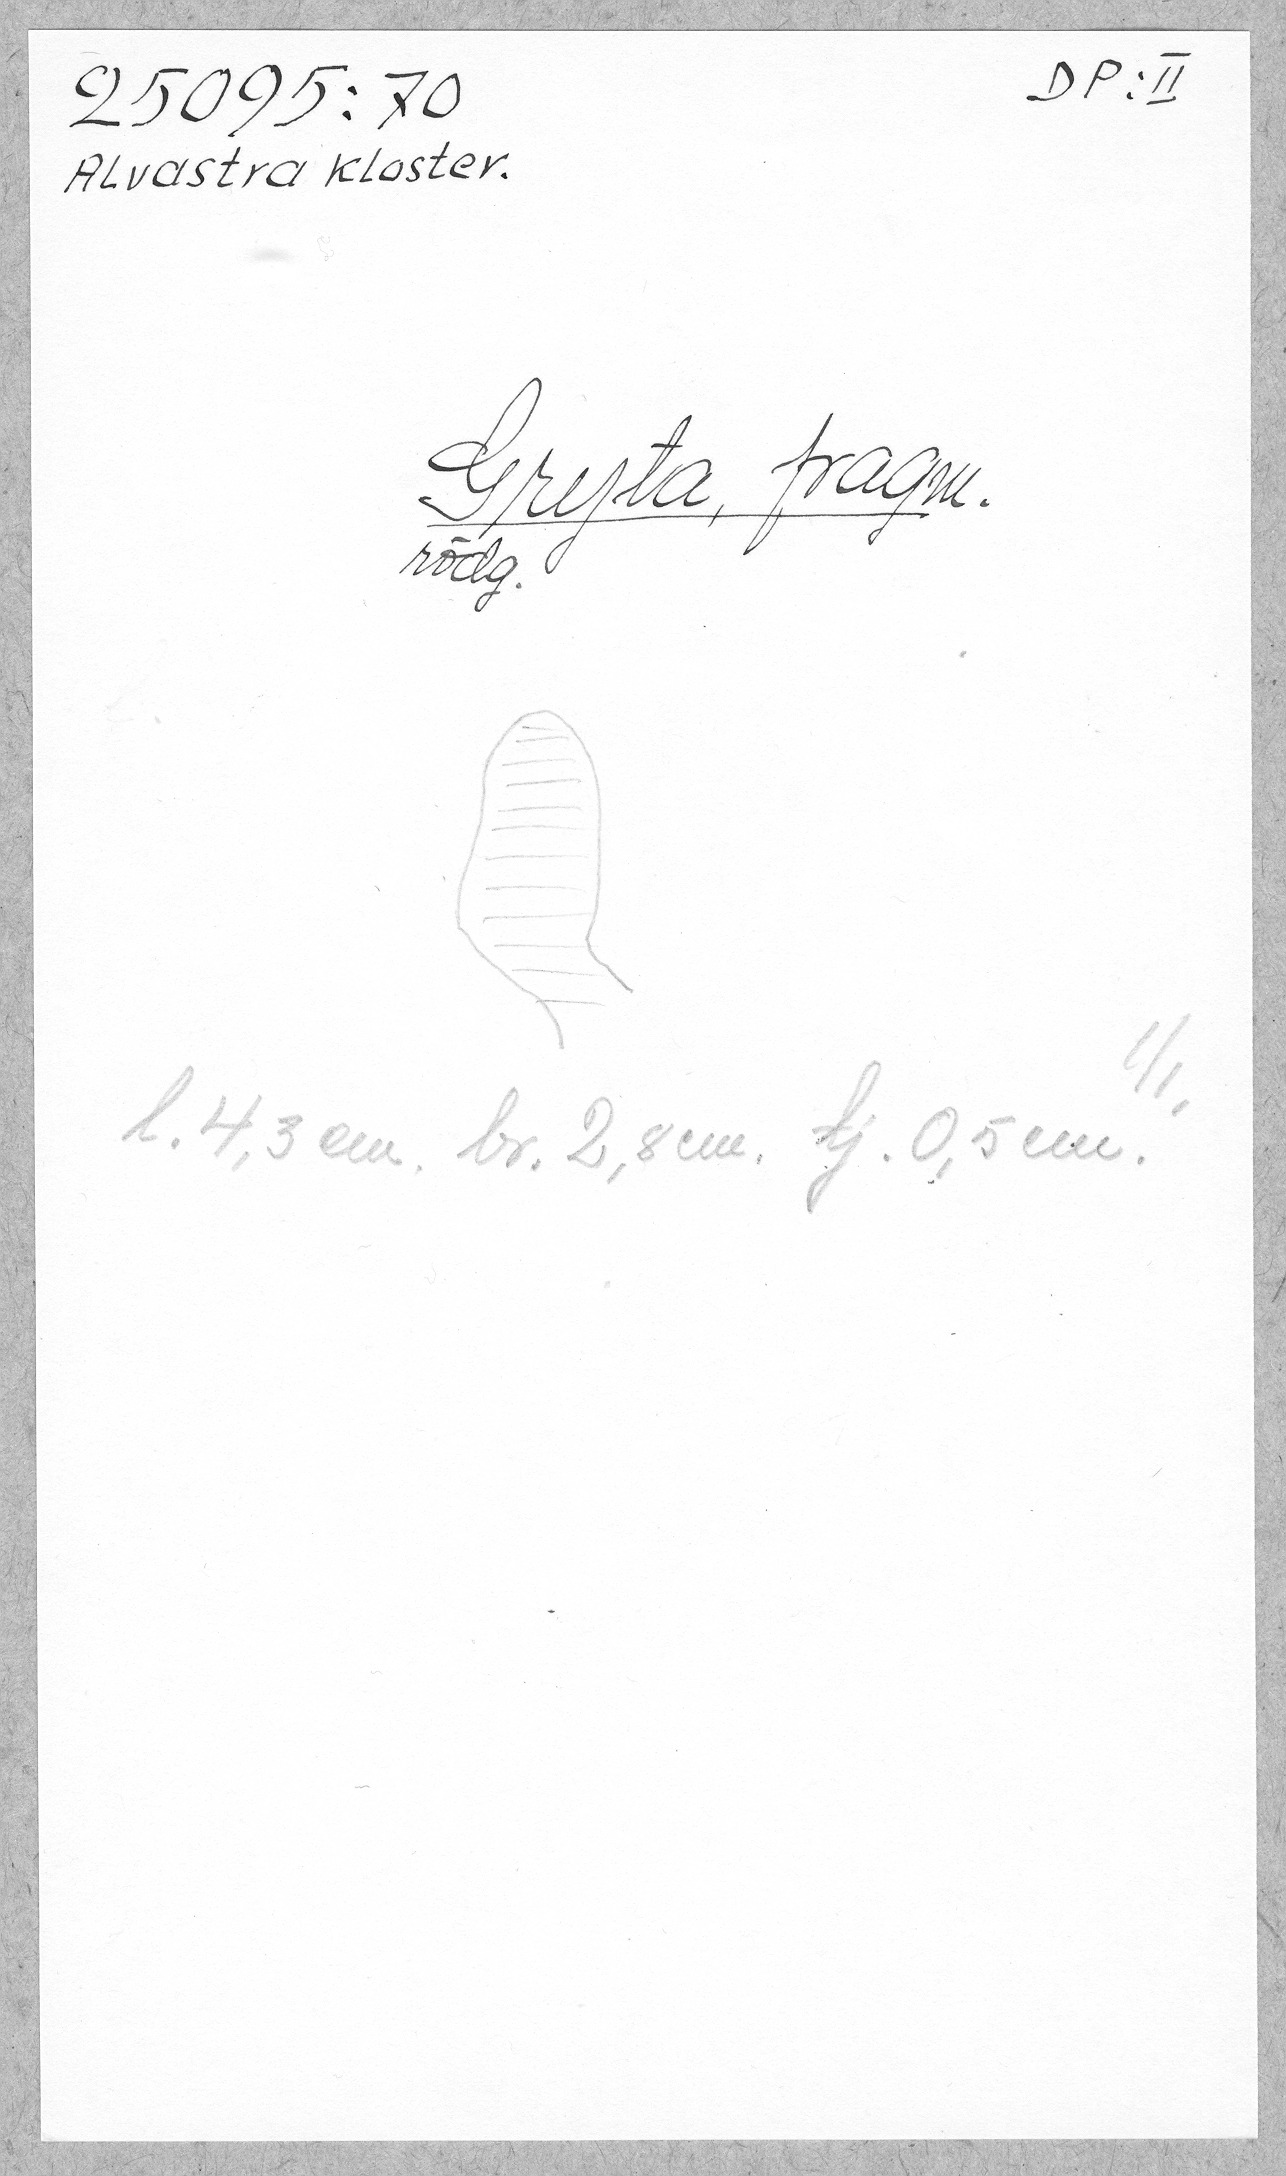 25095:70
DP:II
Alvastra kloster.
Gryta, fragm.
rödg.
1/1.
l. 4,3 cm. br. 2,8 cm. tj. 0,5 cm.